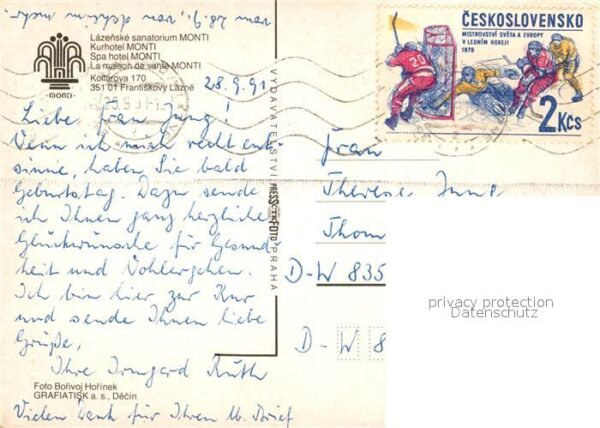 Lázeňské sanatorium MONTI
Kurhotel MONTI
Spa hotel MONTI
La maison de santé MONTI
Kollárova 170
351 01 Františkovy Lázně
MONTI
28.9.91
Liebe Frau Jung!
Wenn ich mich recht ent-
sinne, haben Sie bald
Geburtstag. Dazu sende
ich Ihnen ganz herzliche
Glückwünsche für Gesund-
heit und Wohlergehen.
Ich bin hier zur Kur
und sende Ihnen liebe
Grüße,
Ihre Irmgard Ruth
Foto Bořivoj Hořínek
GRAFIATISK a. s., Děčín
Vielen Dank für Ihren lb. Brief
VYDAVATELSTVÍ PRESSFOTO PRAHA
ČESKOSLOVENSKO
MISTROVSTVÍ SVĚTA A EVROPY
V LEDNÍM HOKEJI
1978
20
2 Kčs
Frau
Therese Jung
Thom
D-W 835
D-W 8
privacy protection
Datenschutz